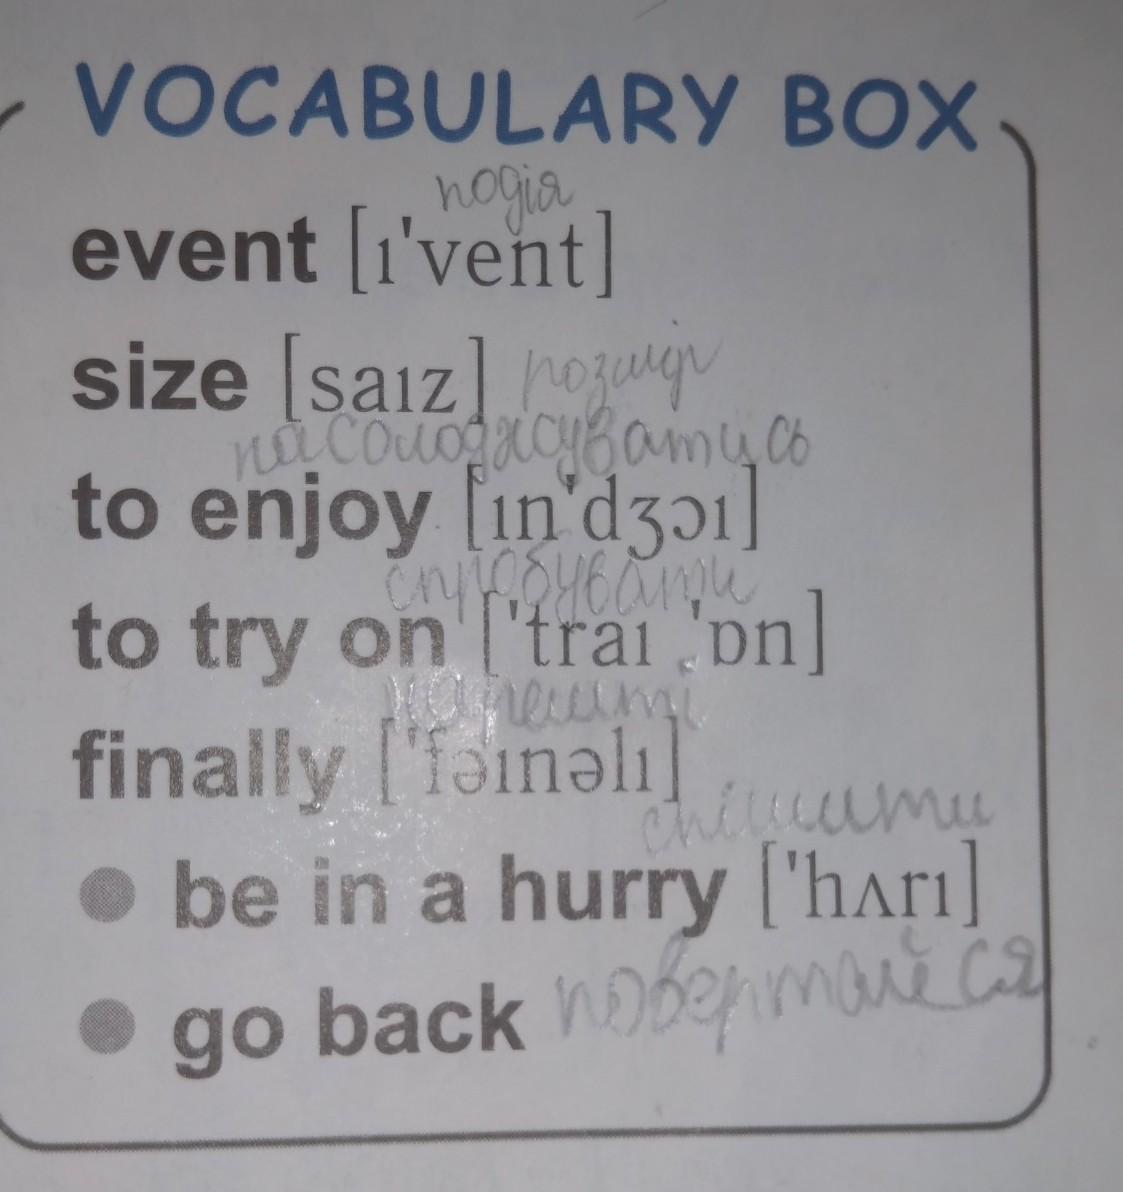 VOCABULARY BOX
подія
event [ɪ'vent]
size [saɪz] розмір
насолоджуватись
to enjoy [ɪn'dʒɔɪ]
спробувати
to try on ['traɪ ˌ'ɒn]
нарешті
finally ['fəɪnəlɪ]
спішити
be in a hurry ['hʌrɪ]
go back повертайся